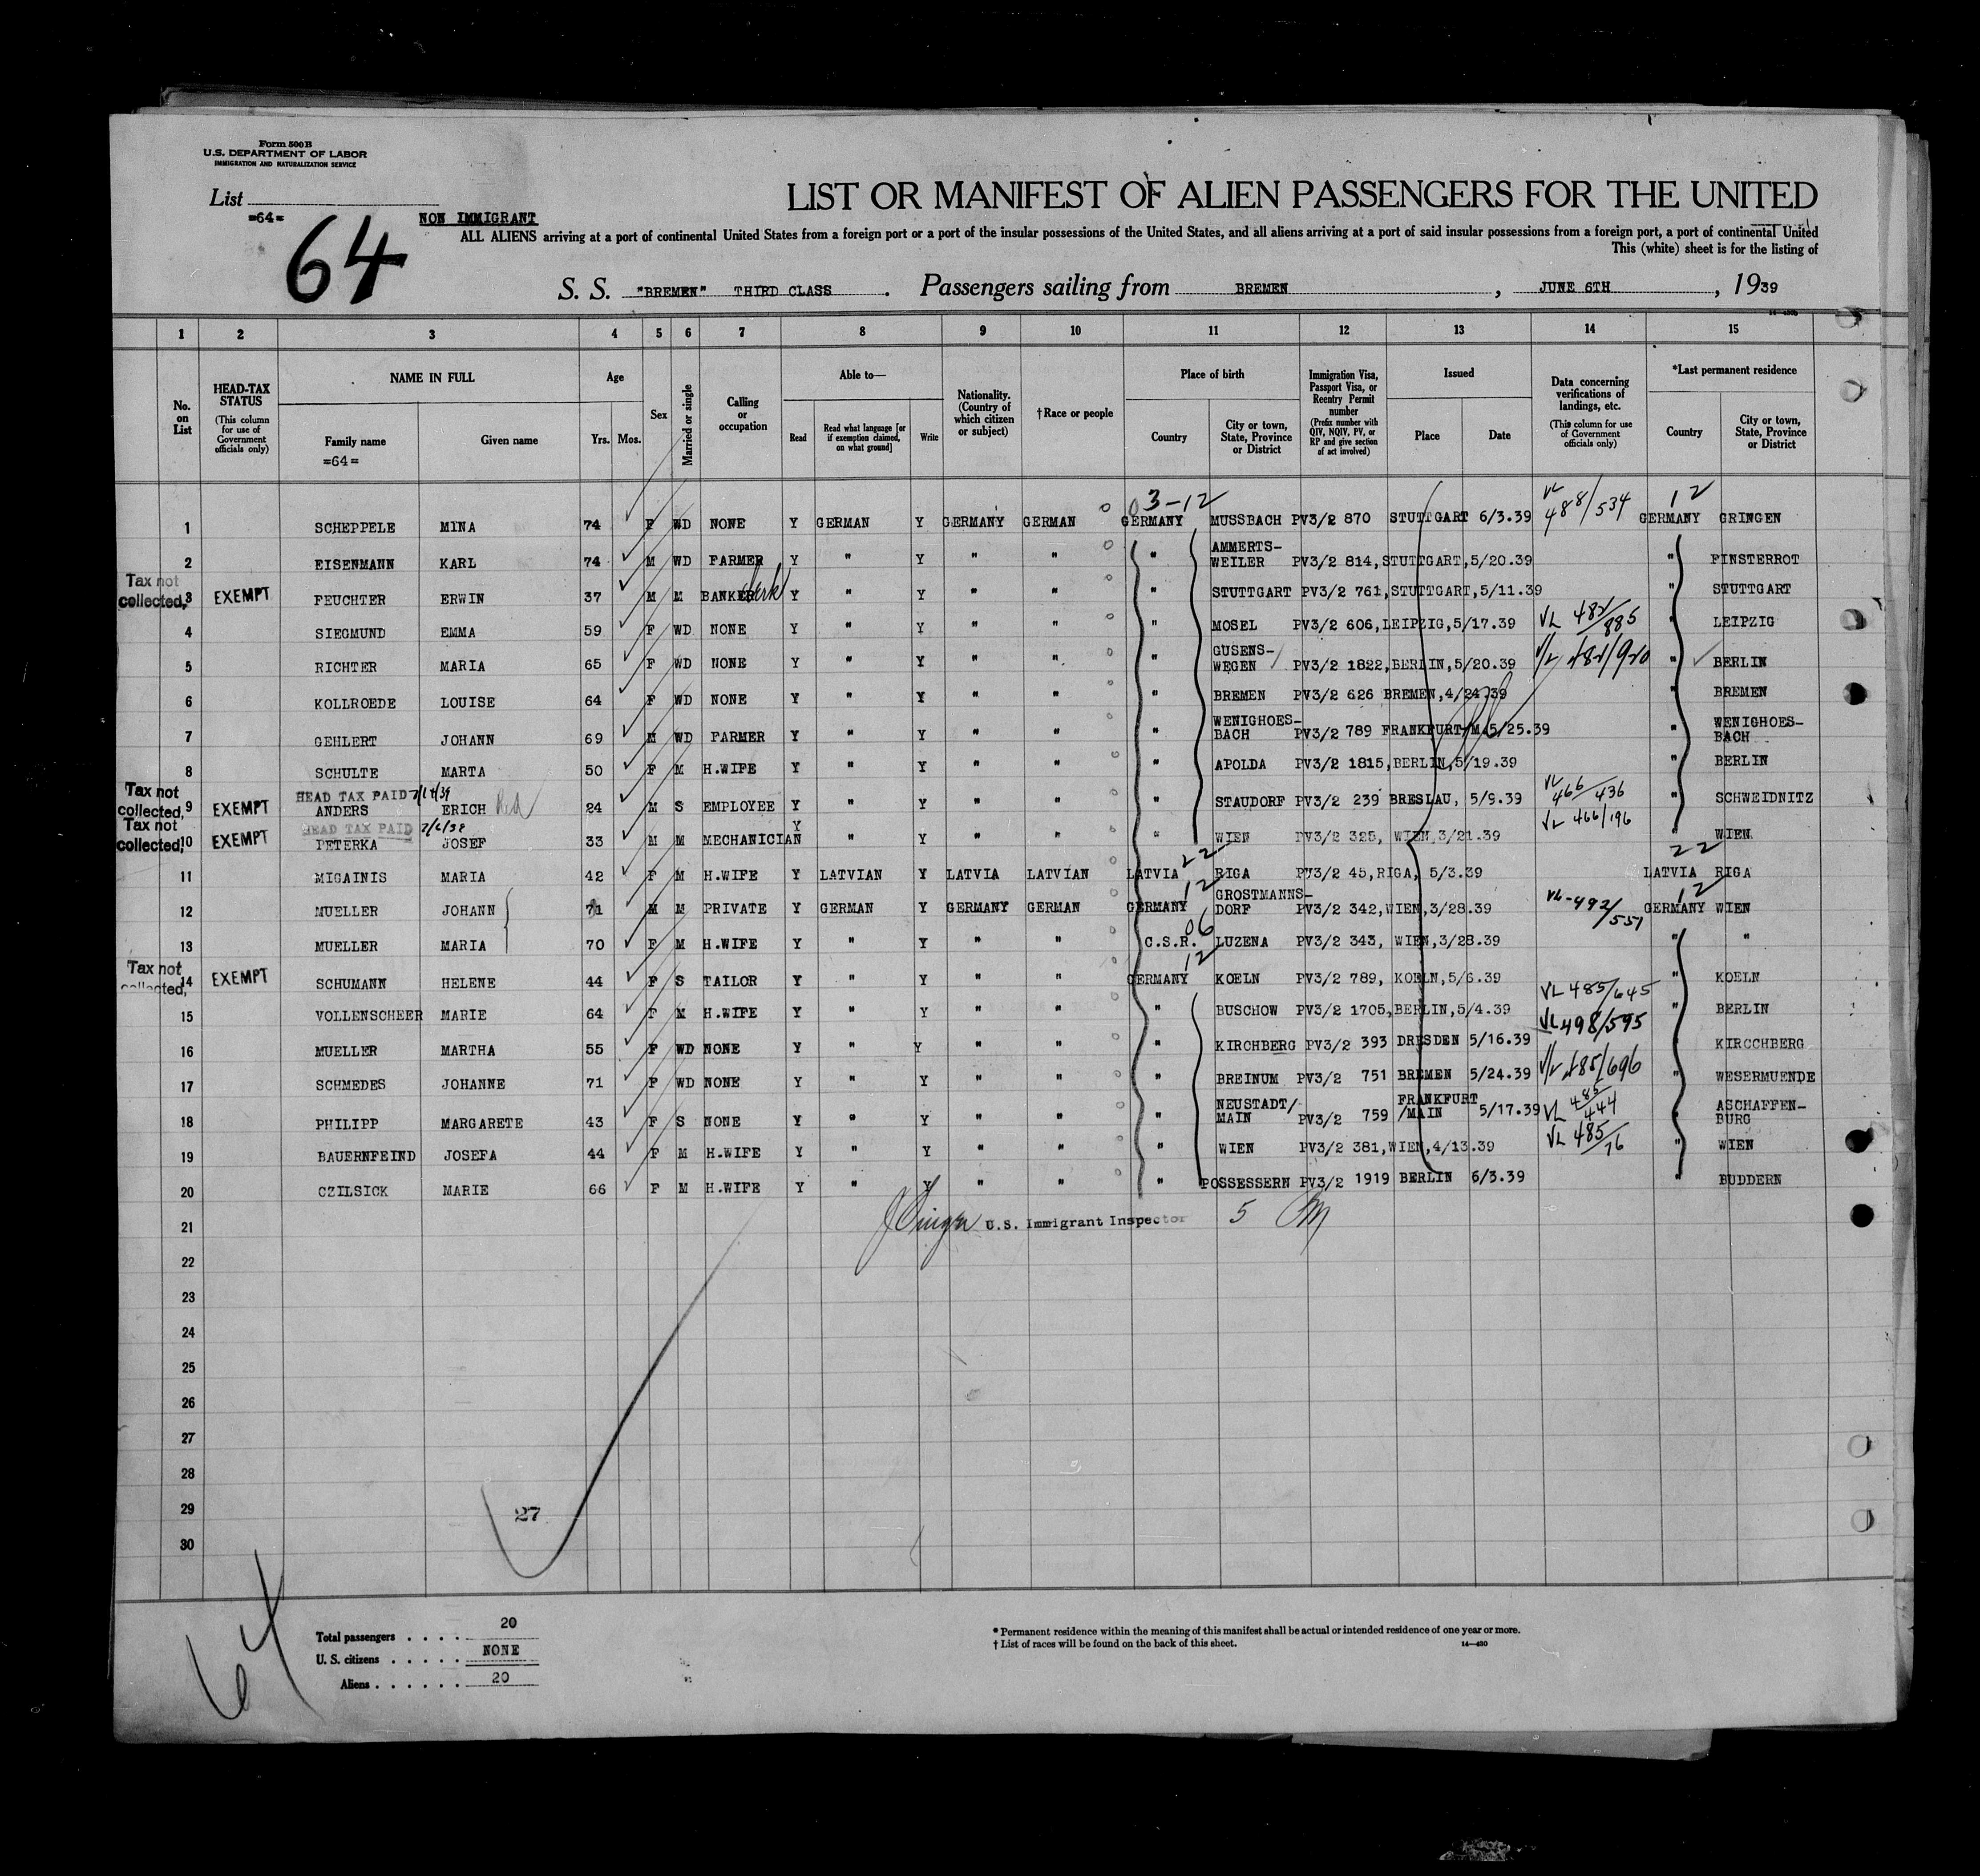 Form 500B
U.S. DEPARTMENT OF LABOR
IMMIGRATION AND NATURALIZATION SERVICE
List
=64=
64
NON IMMIGRANT
LIST OR MANIFEST OF ALIEN PASSENGERS FOR THE UNITED
ALL ALIENS arriving at a port of continental United States from a foreign port or a port of the insular possessions of the United States, and all aliens arriving at a port of said insular possessions from a foreign port, a port of continental United
This (white) sheet is for the listing of
S. S. "BREMEN" THIRD CLASS . Passengers sailing from BREMEN , JUNE 6TH , 1939
1 2 3 4 5 6 7 8 9 10 11 12 13 14 15
No. on List
HEAD-TAX STATUS (This column for use of Government officials only)
NAME IN FULL
Family name
=64=
Given name
Age
Yrs. Mos.
Sex
Married or single
Calling or occupation
Able to—
Read
Read what language [or if exemption claimed, on what ground]
Write
Nationality. (Country of which citizen or subject)
†Race or people
Place of birth
Country
City or town, State, Province or District
Immigration Visa, Passport Visa, or Reentry Permit number (Prefix number with QIV, NQIV, PV, or RP and give section of act involved)
Issued
Place
Date
Data concerning verifications of landings, etc. (This column for use of Government officials only)
*Last permanent residence
Country
City or town, State, Province or District
03-12 VL 488/534 12
1 SCHEPPELE MINA 74 F WD NONE Y GERMAN Y GERMANY GERMAN GERMANY MUSSBACH PV3/2 870 STUTTGART 6/3.39 GERMANY GRINGEN
2 EISENMANN KARL 74 M WD FARMER Y " Y " " " AMMERTS-WEILER PV3/2 814,STUTTGART,5/20.39 " FINSTERROT
Tax not collected, 3 EXEMPT FEUCHTER ERWIN 37 M M BANKER clerk Y " Y " " " STUTTGART PV3/2 761,STUTTGART,5/11.39 " STUTTGART
4 SIEGMUND EMMA 59 F WD NONE Y " Y " " " MOSEL PV3/2 606,LEIPZIG,5/17.39 " LEIPZIG
5 RICHTER MARIA 65 F WD NONE Y " Y " " " GUSENS-WEGEN PV3/2 1822,BERLIN,5/20.39 " BERLIN
6 KOLLROEDE LOUISE 64 F WD NONE Y " Y " " " BREMEN PV3/2 626 BREMEN,4/24.39 " BREMEN
7 GEHLERT JOHANN 69 M WD FARMER Y " Y " " " WENIGHOES-BACH PV3/2 789 FRANKFURT/M.5/25.39 " WENIGHOES-BACH
8 SCHULTE MARTA 50 F M H.WIFE Y " Y " " " APOLDA PV3/2 1815,BERLIN,5/19.39 " BERLIN
Tax not collected, 9 EXEMPT HEAD TAX PAID ANDERS ERICH 24 M S EMPLOYEE Y " Y " " " STAUDORF PV3/2 239 BRESLAU, 5/9.39 VL 466/436 " SCHWEIDNITZ
Tax not collected, 10 EXEMPT HEAD TAX PAID PETERKA JOSEF 33 M M MECHANICIAN Y " Y " " " WIEN PV3/2 325, WIEN,3/21.39 VL 466/196 " WIEN
22 22
11 MIGAINIS MARIA 42 F M H.WIFE Y LATVIAN Y LATVIA LATVIAN LATVIA RIGA PV3/2 45,RIGA, 5/3.39 LATVIA RIGA
12 12
12 MUELLER JOHANN 71 M M PRIVATE Y GERMAN Y GERMANY GERMAN GERMANY GROSTMANNS-DORF PV3/2 342,WIEN,3/28.39 VL-492/551 GERMANY WIEN
06
13 MUELLER MARIA 70 F M H.WIFE Y " Y " " C.S.R. LUZENA PV3/2 343, WIEN,3/28.39 " "
12
Tax not collected, 14 EXEMPT SCHUMANN HELENE 44 F S TAILOR Y " Y " " GERMANY KOELN PV3/2 789, KOELN,5/6.39 " KOELN
15 VOLLENSCHEER MARIE 64 F M H.WIFE Y " Y " " " BUSCHOW PV3/2 1705,BERLIN,5/4.39 VL 485/645 " BERLIN
16 MUELLER MARTHA 55 F WD NONE Y " Y " " " KIRCHBERG PV3/2 393 DRESDEN 5/16.39 VL 498/595 " KIRCCHBERG
17 SCHMEDES JOHANNE 71 F WD NONE Y " Y " " " BREINUM PV3/2 751 BREMEN 5/24.39 VL 485/696 " WESERMUENDE
18 PHILIPP MARGARETE 43 F S NONE Y " Y " " " NEUSTADT/MAIN PV3/2 759 FRANKFURT/MAIN 5/17.39 VL 485/444 " ASCHAFFEN-BURG
19 BAUERNFEIND JOSEFA 44 F M H.WIFE Y " Y " " " WIEN PV3/2 381,WIEN,4/13.39 VL 485/76 " WIEN
20 CZILSICK MARIE 66 F M H.WIFE Y " Y " " " POSSESSERN PV3/2 1919 BERLIN 6/3.39 " BUDDERN
21 U.S. Immigrant Inspector 5
22
23
24
25
26
27
28
29 27
30
64
Total passengers . . . . 20
U. S. citizens . . . . . NONE
Aliens . . . . . . 20
* Permanent residence within the meaning of this manifest shall be actual or intended residence of one year or more.
† List of races will be found on the back of this sheet. 14—430